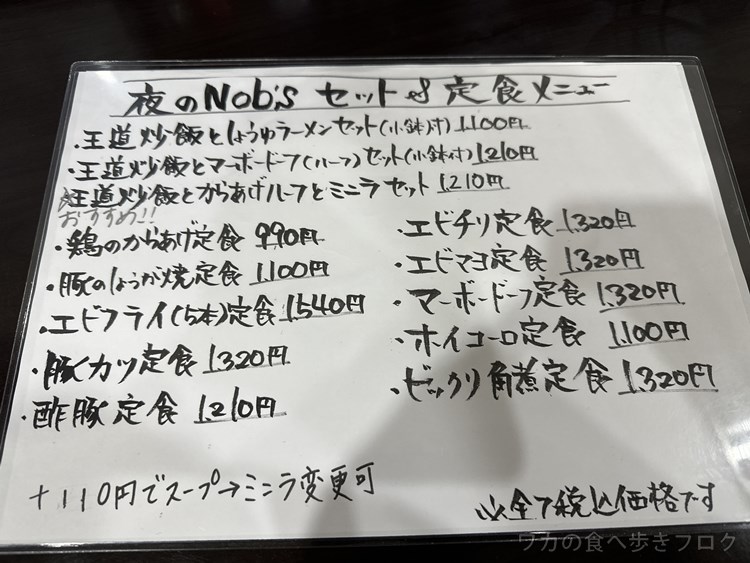 夜のNob's セット&定食メニュー
・王道炒飯としょうゆラーメンセット(小鉢付) 1,100円
・王道炒飯とマーボードーフ(ハーフ)セット(小鉢付) 1,210円
王道炒飯とからあげハーフとミニラーセット 1,210円
おすすめ!!
・鶏のからあげ定食 990円
・豚のしょうが焼定食 1,100円
・エビフライ(5本)定食 1,540円
・豚カツ定食 1,320円
・酢豚定食 1,210円
・エビチリ定食 1,320円
・エビマヨ定食 1,320円
・マーボードーフ定食 1,320円
・ホイコーロ定食 1,100円
・ビックリ角煮定食 1,320円
+110円でスープ→ミニラ変更可
※全て税込価格です
ワカの食べ歩きブログ